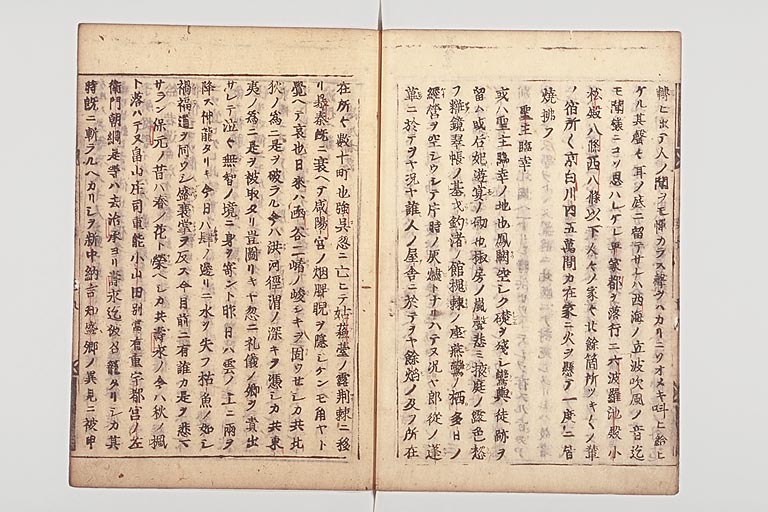 轉ヒ出テ人ノ聞ヲモ憚カラス聲ヲハカリニソオメキ叫ヒ給ヒ
ケル其聲々耳ノ底ニ留テサレハ西海ノ立波吹風ノ音迄
モ聞樣ニコソ思ハレケレ平家都ヲ落行ニ六波羅池殿小
松殿八條西八條以下人々ノ家々北餘箇所ツキくノ輩
ノ宿所く京白川四五萬間カ在家ニ火ヲ懸テ一度ニ皆
燒拂フ
聖主臨幸
或ハ聖主臨幸ノ地也鳳闕空シク礎ヲ殘シ鸞輿徒跡ヲ
留ム或后妃遊宴ノ砌也椒房ノ嵐聲悲ミ掖庭ノ露色愁
フ粧鏡翠帳ノ基弋釣渚ノ館槐棘ノ座燕鸞ノ栖多日ノ
經營ヲ空シウシテ片時ノ灰燼トナリハテヌ況ヤ郎從ノ蓬
蓽ニ於テヲヤ況ヤ雜人ノ屋舍ニ於テヲヤ餘焰ノ及フ所在
在所々數十町也強吳忽ニ亡ヒテ姑蘇臺ノ露荊棘ニ移
リ暴秦既ニ衰ヘテ咸陽宮ノ烟睥睨ヲ隱シケンモ角ヤト
覺ヘテ哀也日來ハ函谷二崤ノ嶮シキヲ固ウセシカ共北
狄ノ爲ニ是ヲ破ラル今ハ洪河徑渭ノ深キヲ憑シカ共東
夷ノ爲ニ是ヲ被取タリ豈圖リキヤ忽ニ礼儀ノ鄉ヲ責出
サレテ泣々無智ノ境ニ身ヲ寄ント昨日ハ雲ノ上ニ雨ヲ
降ス神龍タリキ今日ハ肆ノ邊リニ水ヲ失フ枯魚ノ如シ
禍福道ヲ同ウシ盛衰掌ヲ反ス今目前ニ有誰カ是ヲ悲マ
サラン保元ノ昔ハ春ノ花ト榮ヘシカ共壽永ノ今ハ秋ノ楓
ト落ハテヌ畠山庄司重能小山田別當有重宇都宮ノ左
衞門朝綱是等ハ去治承ヨリ壽永迄被召籠タリシカ其
時既ニ斬ラルヘカリシヲ新中納言知盛卿ノ異見ニ被申